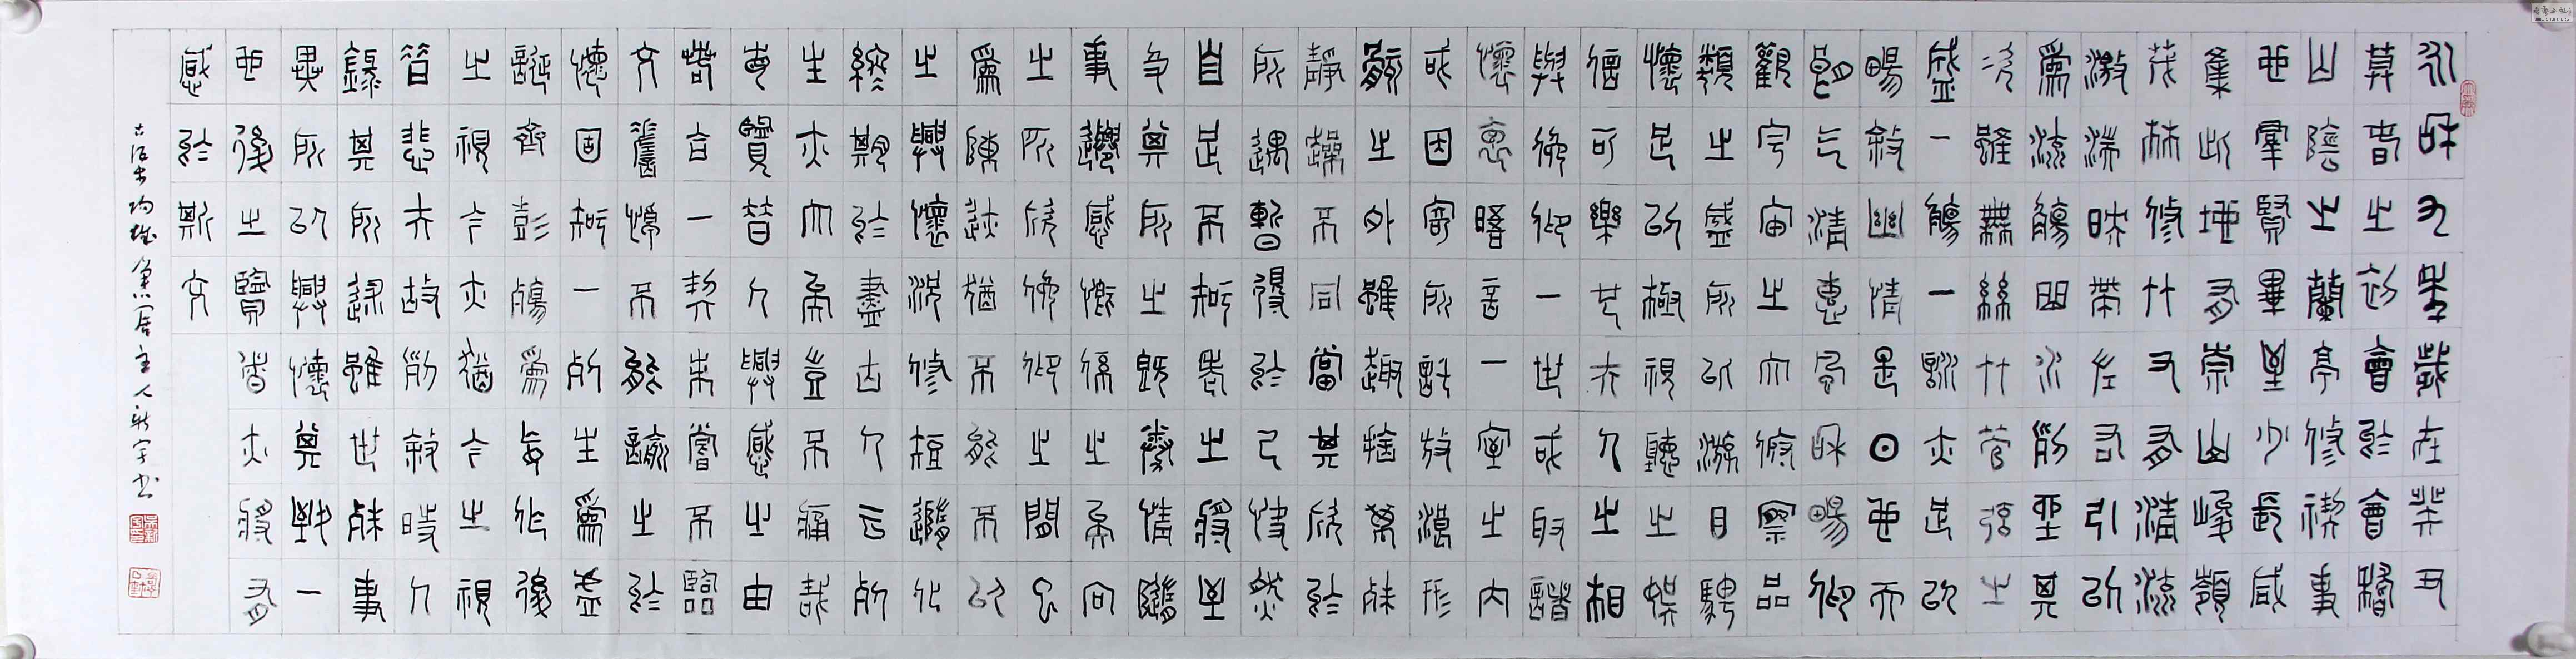 永和九年歲在癸丑
暮春之初會於會稽
山陰之蘭亭修禊事
也群賢畢至少長咸
集此地有崇山峻嶺
茂林修竹又有清流
激湍映帶左右引以
為流觴曲水列坐其
次雖無絲竹管弦之
盛一觴一詠亦足以
暢敘幽情是日也天
朗氣清惠風和暢仰
觀宇宙之大俯察品
類之盛所以遊目騁
懷足以極視聽之娛
信可樂也夫人之相
與俛仰一世或取諸
懷抱晤言一室之內
或因寄所託放浪形
骸之外雖趣舍萬殊
靜躁不同當其欣於
所遇暫得於己快然
自足不知老之將至
及其所之既倦情隨
事遷感慨係之矣向
之所欣俛仰之間已
為陳跡猶不能不以
之興懷況修短隨化
終期於盡古人云死
生亦大矣豈不痛哉
每覽昔人興感之由
若合一契未嘗不臨
文嗟悼不能喻之於
懷固知一死生為虛
誕齊彭殤為妄作後
之視今亦猶今之視
昔悲夫故列敘時人
錄其所述雖世殊事
異所以興懷其致一
也後之覽者亦將有
感於斯文
居主人新宇书